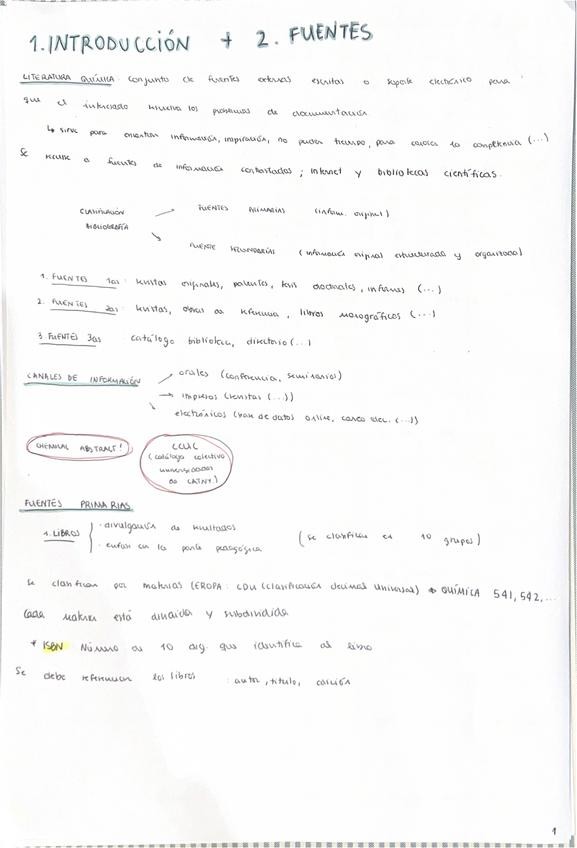 1. INTRODUCCIÓN + 2. FUENTES
LITERATURA QUÍMICA conjunto de fuentes externas escritas o soporte electrónico para
que el interesado resuelva los problemas de documentación
↳ sirve para encontrar información, inspiración, no perder tiempo, para conocer la competencia (...)
Se recurre a fuentes de información contrastadas ; internet y bibliotecas científicas.
CLASIFICACIÓN
BIBLIOGRAFÍA
→ FUENTES PRIMARIAS (inform. original)
→ FUENTE SECUNDARIAS (información original estructurada y organizada)
1. FUENTES 1as: revistas originales, patentes, tesis doctorales, informes (...)
2. FUENTES 2as: revistas, obras de referencia, libros monográficos (...)
3. FUENTES 3as catálogo biblioteca, directorio (...)
CANALES DE INFORMACIÓN
→ orales (conferencia, seminarios)
→ impresos (revistas (...))
→ electrónicos (base de datos online, correo elec. (...))
CHEMICAL ABSTRACT!
CCUC
(catálogo colectivo
universidades
de CATNY.)
FUENTES PRIMARIAS
1. LIBROS
· divulgación de resultados
· enfasi en la parte pedagógica
(se clasifica en 10 grupos)
Se clasifican por materias (EROPA: CDU (clasificación decimal universal) → QUÍMICA 541, 542,...
Cada materia está dividida y subdividida
* ISBN Número de 10 dig. que identifica al libro
Se debe referenciar los libros : autor, título, edición
1